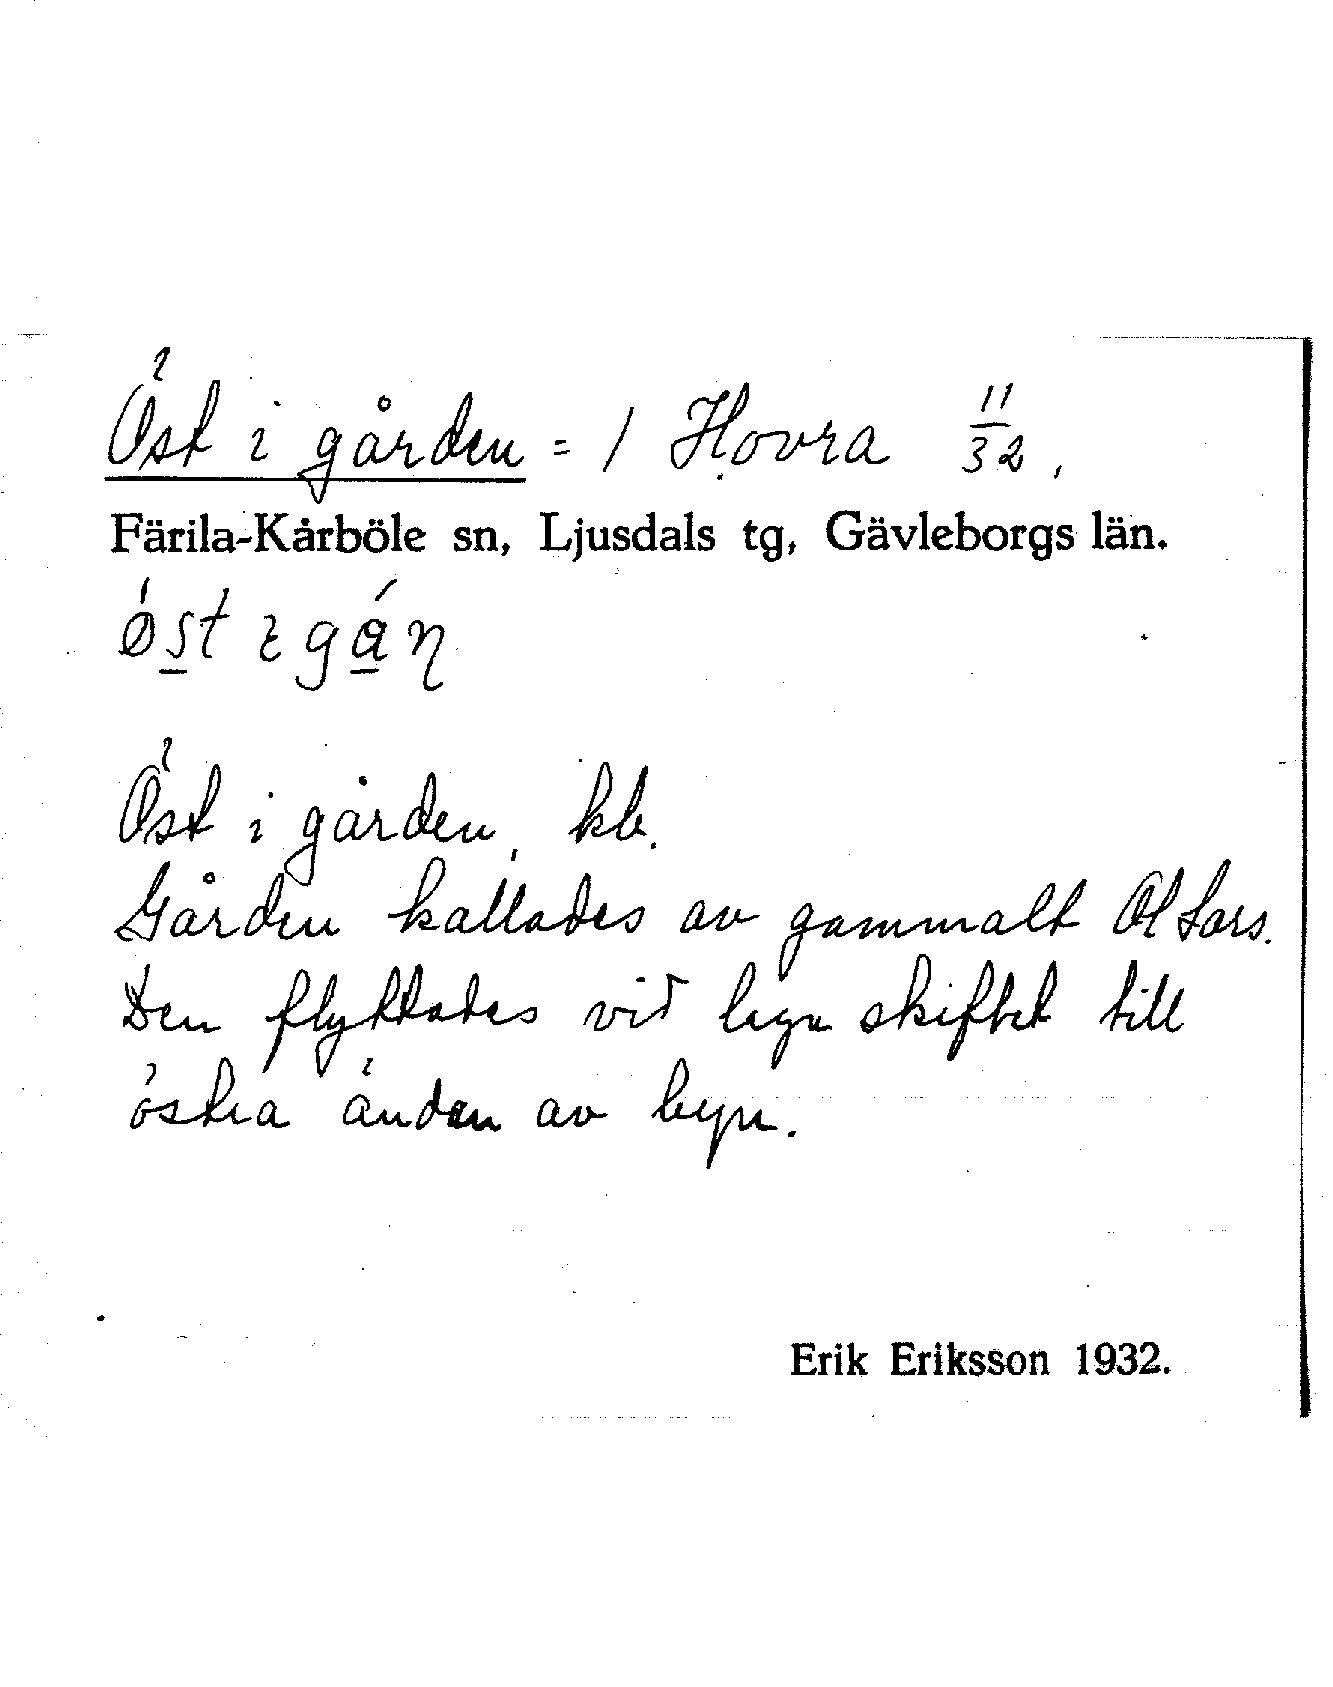 Öst i gården = 1 Hovra 11/32,
Färila-Kårböle sn, Ljusdals tg, Gävleborgs län.
Öst i gården, kb.
Gården kallades av gammalt Ol Lars.
Den flyttades vid byn skiftet till
östra ändan av byn.
Erik Eriksson 1932.